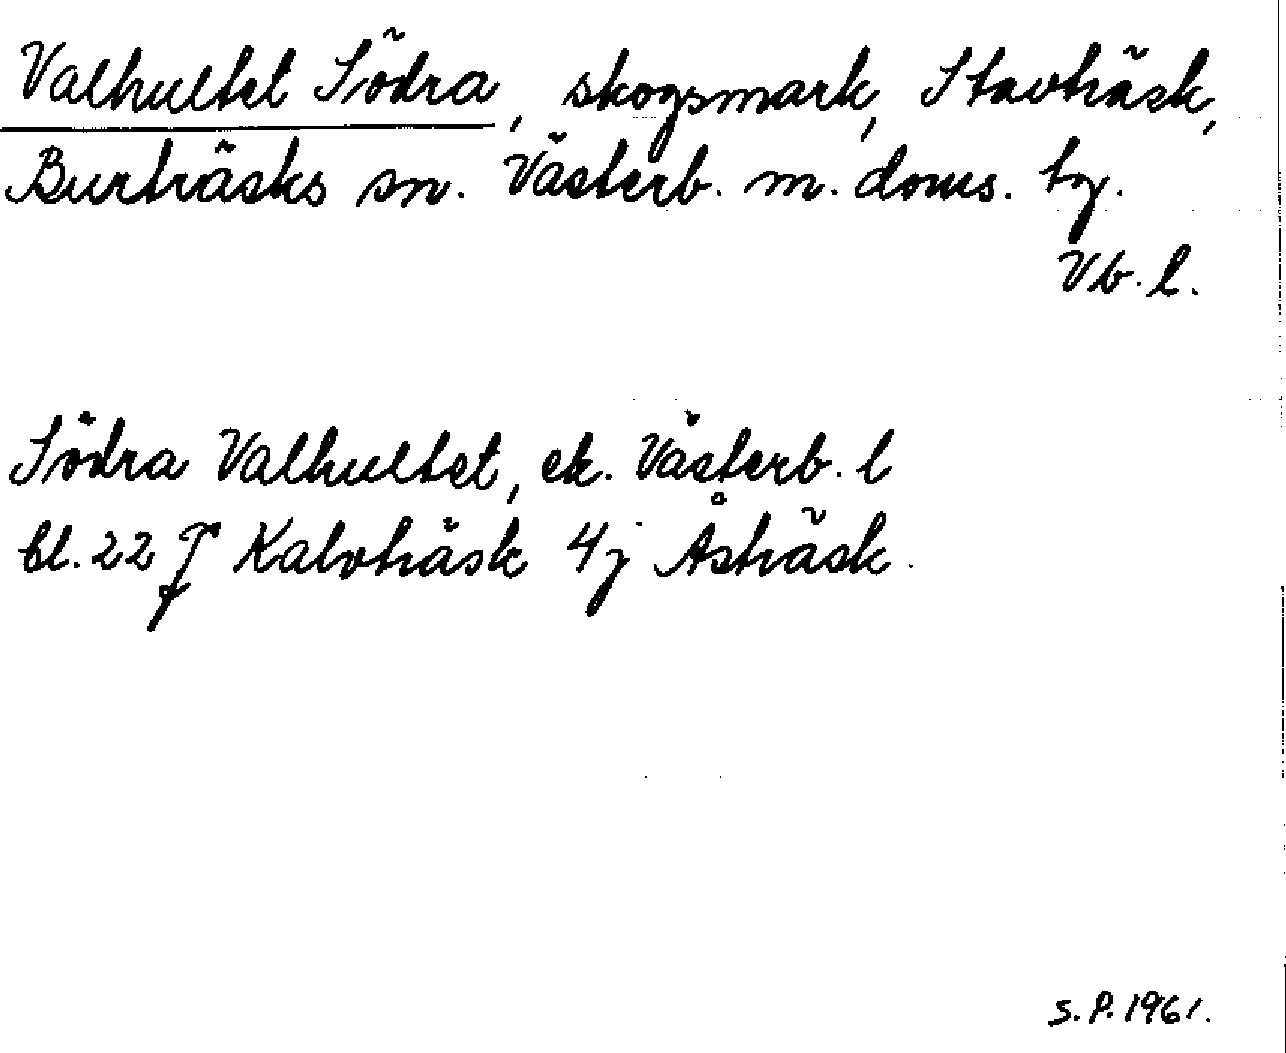 Valhultet Södra, skogsmark, Stavträsk,
Burträsks sn. Västerb. m. doms. tg.
Vb. l.
Södra Valhultet, ek. Västerb. l
bl. 22 J Kalvträsk 4j Åsträsk.
S. P. 1961.